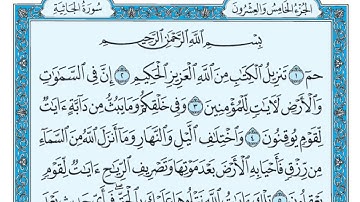 الجزء الخامس والعشرون
سورة الجاثية
بِسْمِ ٱللَّهِ ٱلرَّحْمَٰنِ ٱلرَّحِيمِ
حمٓ ١ تَنزِيلُ ٱلْكِتَٰبِ مِنَ ٱللَّهِ ٱلْعَزِيزِ ٱلْحَكِيمِ ٢ إِنَّ فِى ٱلسَّمَٰوَٰتِ
وَٱلْأَرْضِ لَءَايَٰتٍ لِّلْمُؤْمِنِينَ ٣ وَفِى خَلْقِكُمْ وَمَا يَبُثُّ مِن دَآبَّةٍ ءَايَٰتٌ
لِّقَوْمٍ يُوقِنُونَ ٤ وَٱخْتِلَٰفِ ٱلَّيْلِ وَٱلنَّهَارِ وَمَآ أَنزَلَ ٱللَّهُ مِنَ ٱلسَّمَآءِ
مِن رِّزْقٍ فَأَحْيَا بِهِ ٱلْأَرْضَ بَعْدَ مَوْتِهَا وَتَصْرِيفِ ٱلرِّيَٰحِ ءَايَٰتٌ لِّقَوْمٍ